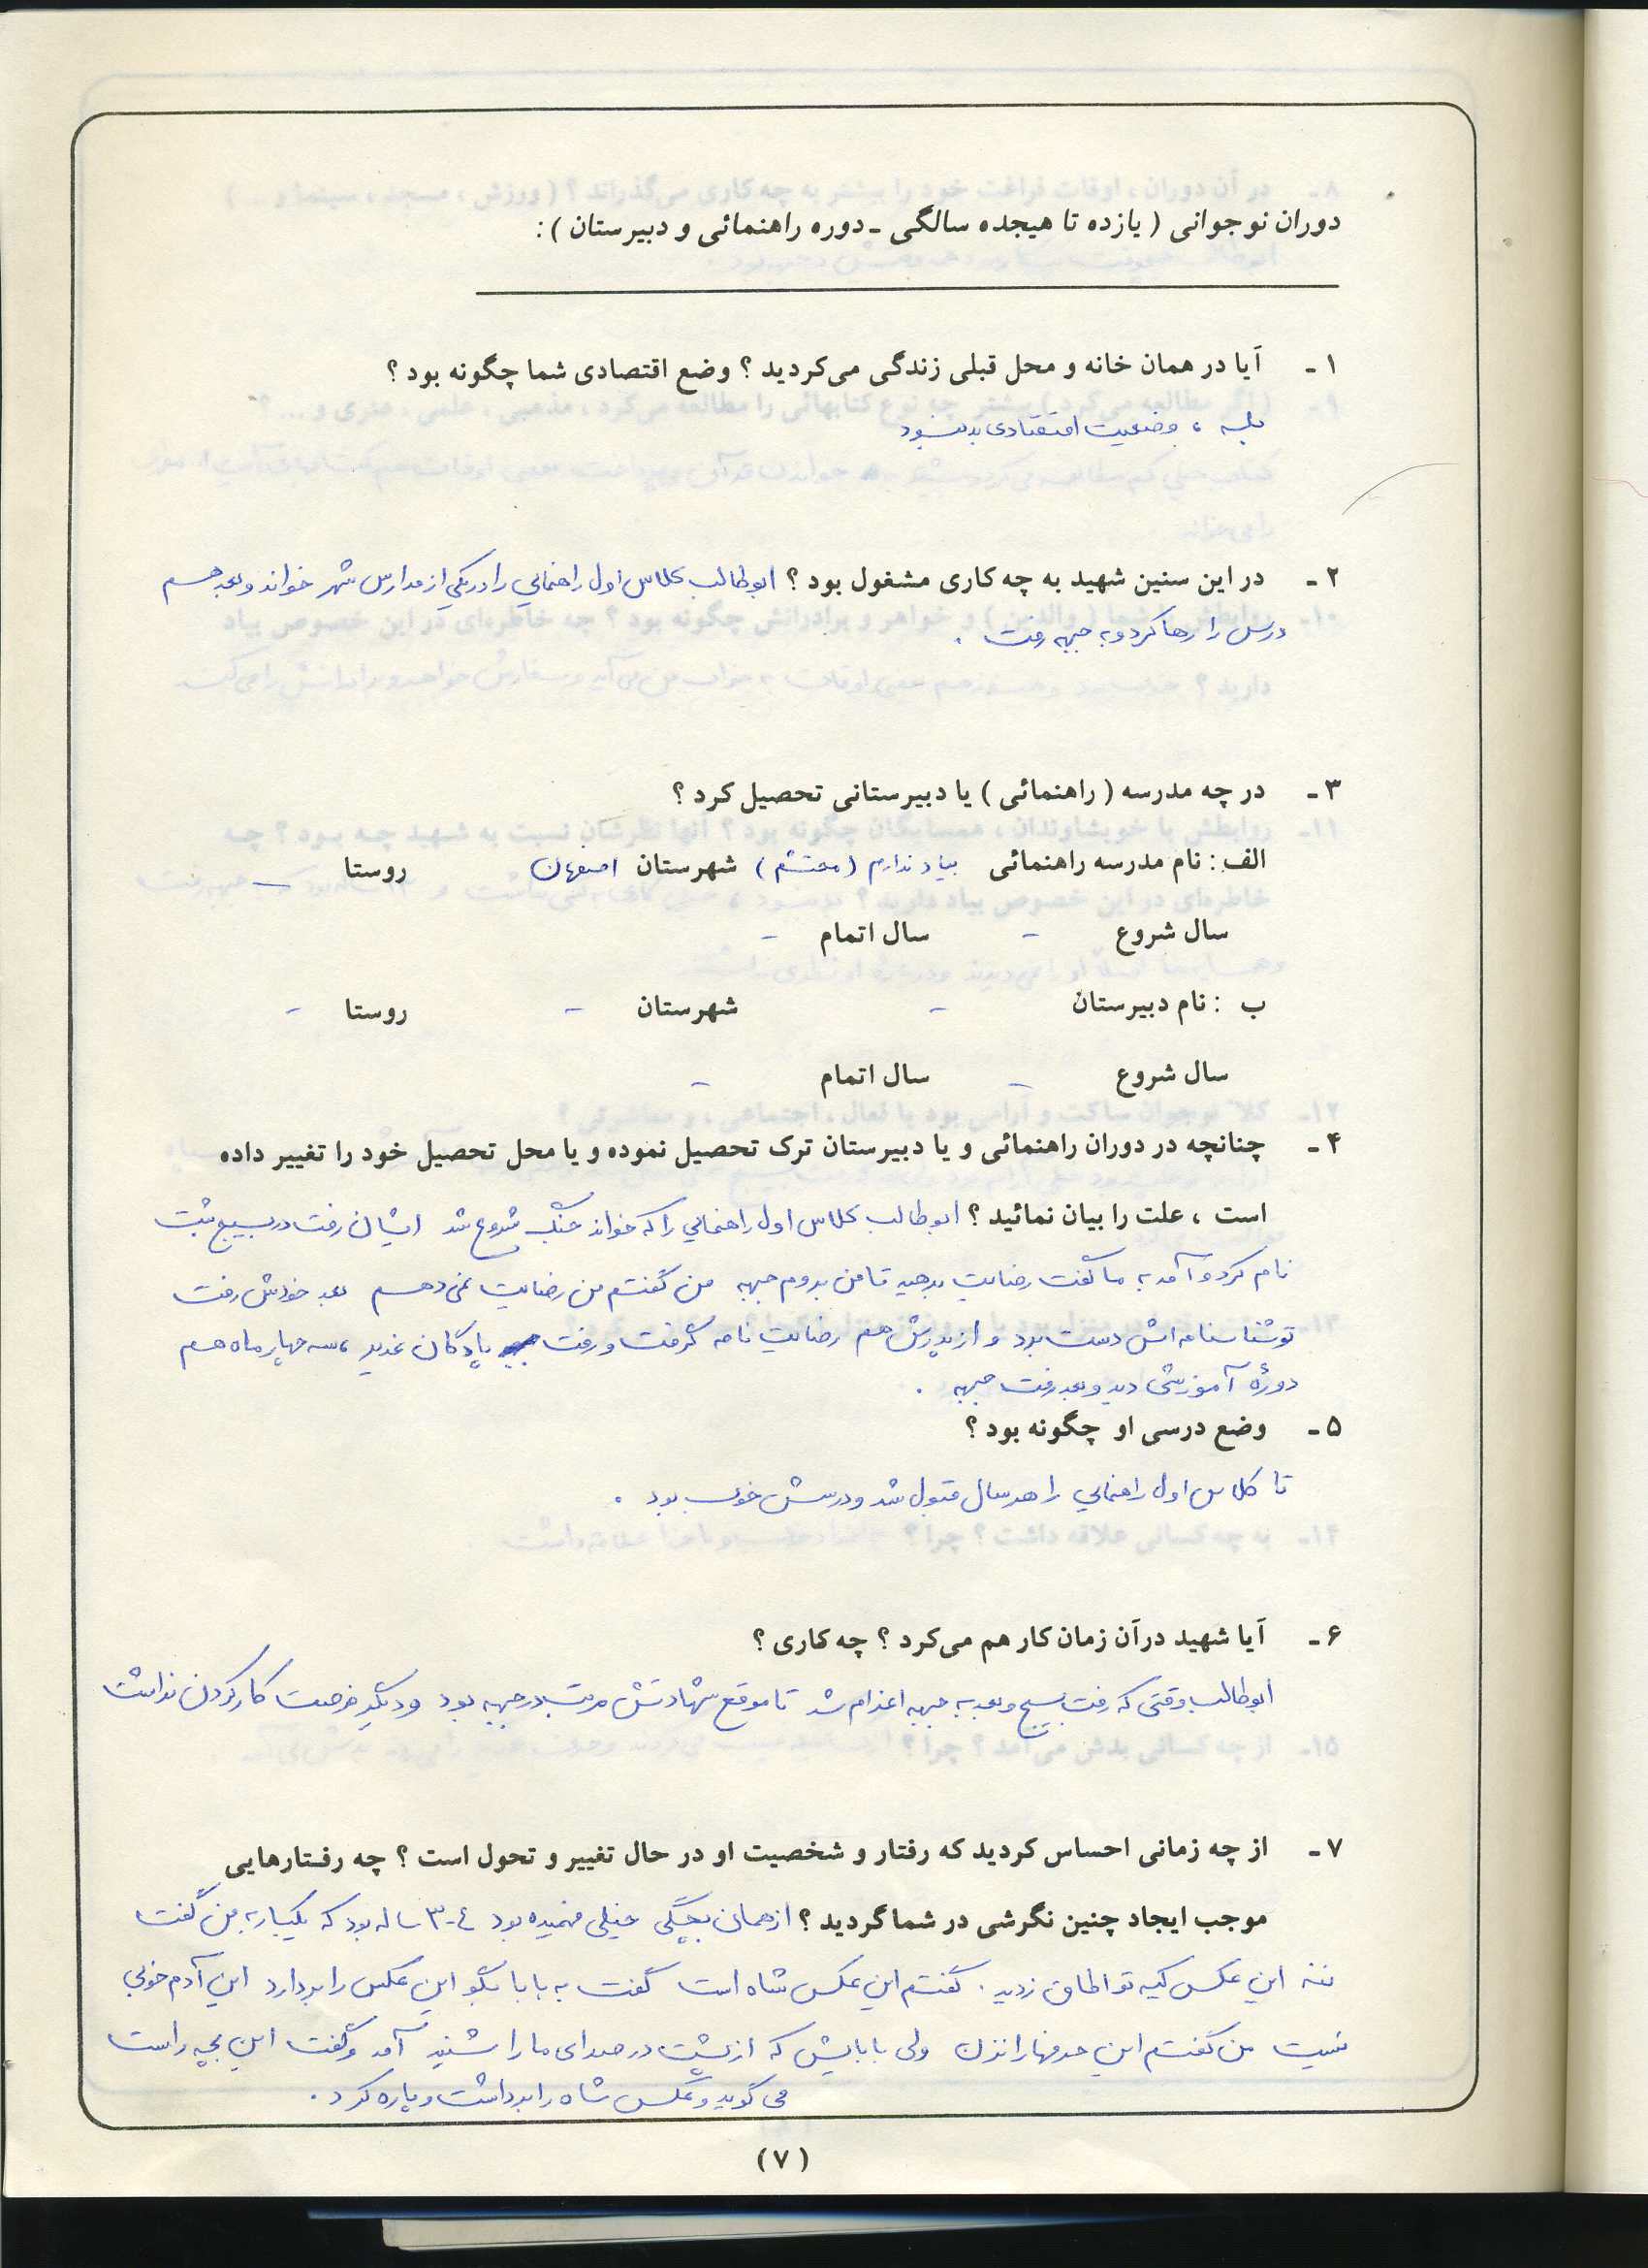 دوران نوجوانی ( یازده تا هیجده سالگی ـ دوره راهنمائی و دبیرستان ) :
۱ ـ آیا در همان خانه و محل قبلی زندگی می‌کردید ؟ وضع اقتصادی شما چگونه بود ؟
بله ، وضعیت اقتصادی بد نبود
۲ ـ در این سنین شهید به چه کاری مشغول بود ؟ ابوطالب کلاس اول راهنمایی را در یکی از مدارس شهر خواند و بعد هم
درس را رها کرد و به جبهه رفت .
۳ ـ در چه مدرسه ( راهنمائی ) یا دبیرستانی تحصیل کرد ؟
الف : نام مدرسه راهنمائی بیاد ندارم (محتشم) شهرستان اصفهان روستا ـ
سال شروع - سال اتمام -
ب : نام دبیرستان - شهرستان - روستا -
سال شروع - سال اتمام -
۴ ـ چنانچه در دوران راهنمائی و یا دبیرستان ترک تحصیل نموده و یا محل تحصیل خود را تغییر داده
است ، علت را بیان نمائید ؟ ابوطالب کلاس اول راهنمایی را که خواند جنگ شروع شد ایشان رفت در بسیج ثبت
نام کرد و آمد به ما گفت رضایت بدهید تا من بروم جبهه من گفتم من رضایت نمی دهم بعد خودش رفت
تو شناسنامه اش دست برد و از پدرش هم رضایت نامه گرفت و رفت پادگان غدیر ، سه چهار ماه هم
دورهٔ آموزشی دید و بعد رفت جبهه .
۵ ـ وضع درسی او چگونه بود ؟
تا کلاس اول راهنمایی را هر سال قبول شد و درسش خوب بود .
۶ ـ آیا شهید درآن زمان کار هم می‌کرد ؟ چه کاری ؟
ابوطالب وقتی که رفت بسیج و بعد به جبهه اعزام شد تا موقع شهادتش مرتب در جبهه بود و دیگر فرصت کار کردن نداشت
۷ ـ از چه زمانی احساس کردید که رفتار و شخصیت او در حال تغییر و تحول است ؟ چه رفتارهایی
موجب ایجاد چنین نگرشی در شما گردید ؟ از همان بچگی خیلی فهمیده بود ۴-۳ ساله بود که یکبار به من گفت
ننه این عکس کیه تو اطاق زدید . گفتم این عکس شاه است گفت به بابا بگو این عکس را بردارد این آدم خوبی
نیست من گفتم این حرفها را نزن ولی بابایش که از پشت در صدای ما را شنید آمد و گفت این بچه راست
می گوید و عکس شاه را برداشت و پاره کرد .
( ۷ )